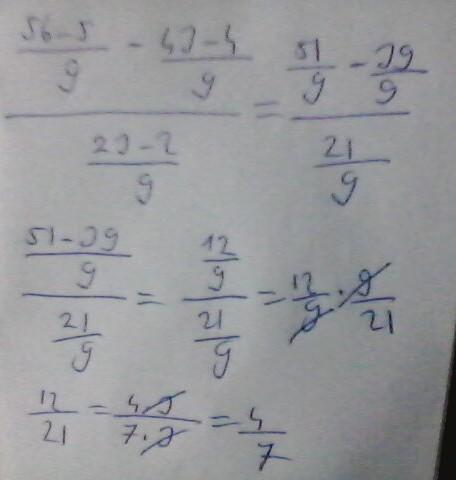 (56-5)/9 - (43-4)/9 / (23-2)/9 = 51/9 - 39/9 / 21/9
(51-39)/9 / 21/9 = 12/9 / 21/9 = 12/9 · 9/21
12/21 = 4·3/7·3 = 4/7